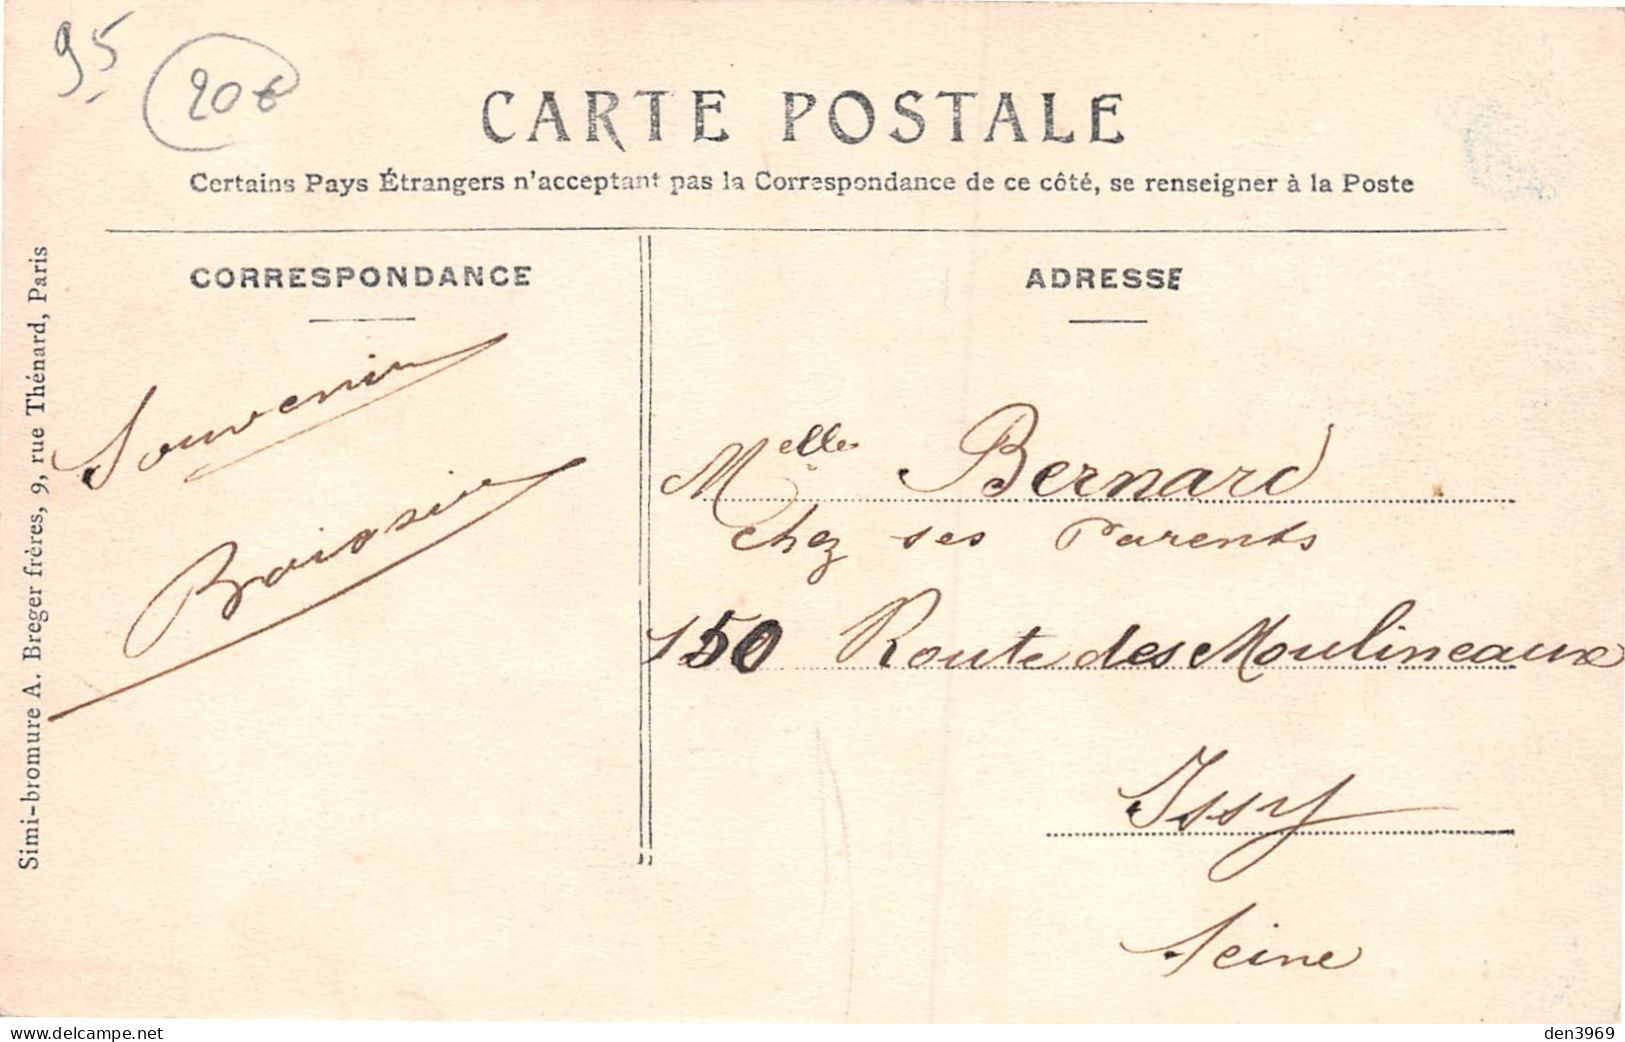 95
20€
CARTE POSTALE
Certains Pays Étrangers n'acceptant pas la Correspondance de ce côté, se renseigner à la Poste
Simi-bromure A. Breger frères, 9, rue Thénard, Paris
CORRESPONDANCE
Souvenir
ADRESSE
Melle Bernard
chez ses Parents
150 Route des Moulineaux
Issy
Seine
www.delcampe.net
den3969